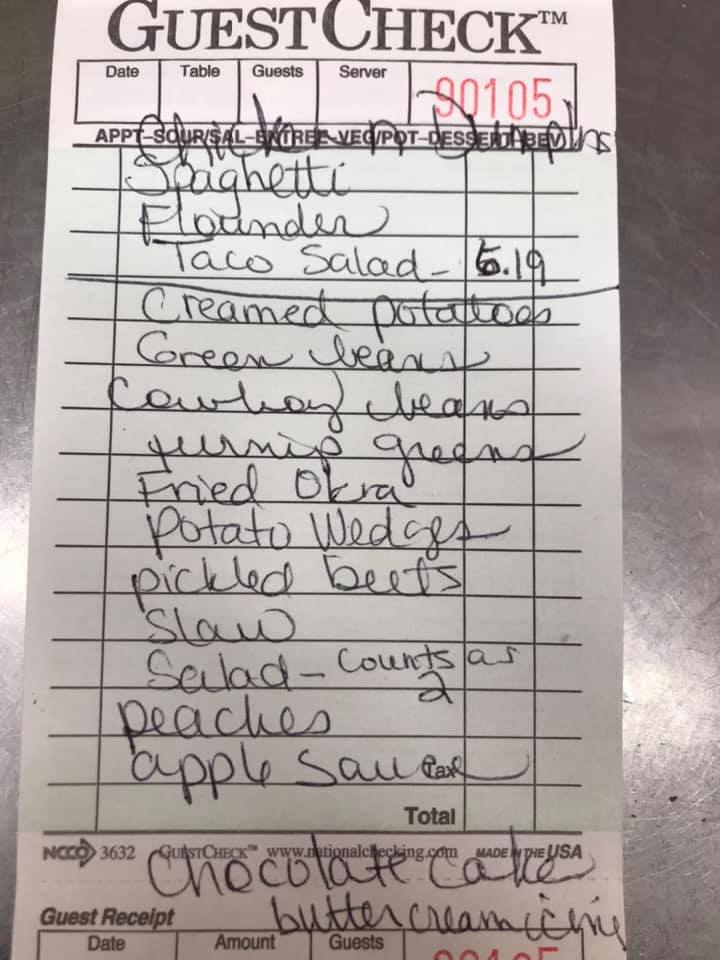 GUESTCHECK™
Date Table Guests Server 90105
APPT-SOUP/SAL-ENTREE-VEG/POT-DESSERT-BEV
Chicken n Dumplins
Spaghetti
Flounder
Taco Salad - 6.19
Creamed potatoes
Green beans
Cowboy beans
turnip greens
Fried Okra
Potato Wedges
pickled beets
Slaw
Salad - Counts as
2
peaches
apple sauce
Tax
Total
NCCO 3632 GUESTCHECK™ www.nationalchecking.com MADE IN THE USA
Chocolate Cake
buttercream icing
Guest Receipt
Date Amount Guests 90105